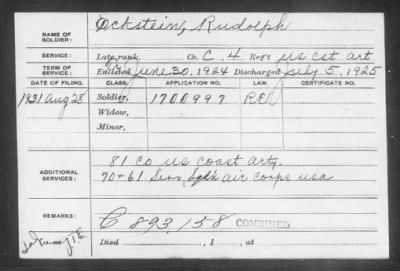 NAME OF SOLDIER: Eckstein, Rudolph
SERVICE: Late rank, Co. C. 4 Reg't us cst art
TERM OF SERVICE: Enlisted June 30, 1924 Discharged July 5, 1925
DATE OF FILING. CLASS. APPLICATION NO. LAW. CERTIFICATE NO.
1931 Aug 28 Soldier, 1700997
Widow,
Minor,
ADDITIONAL SERVICES: 81 Co us coast arty.
70+61 air corps usa
REMARKS: C 893,158 COMBINED
Died , 1 , at